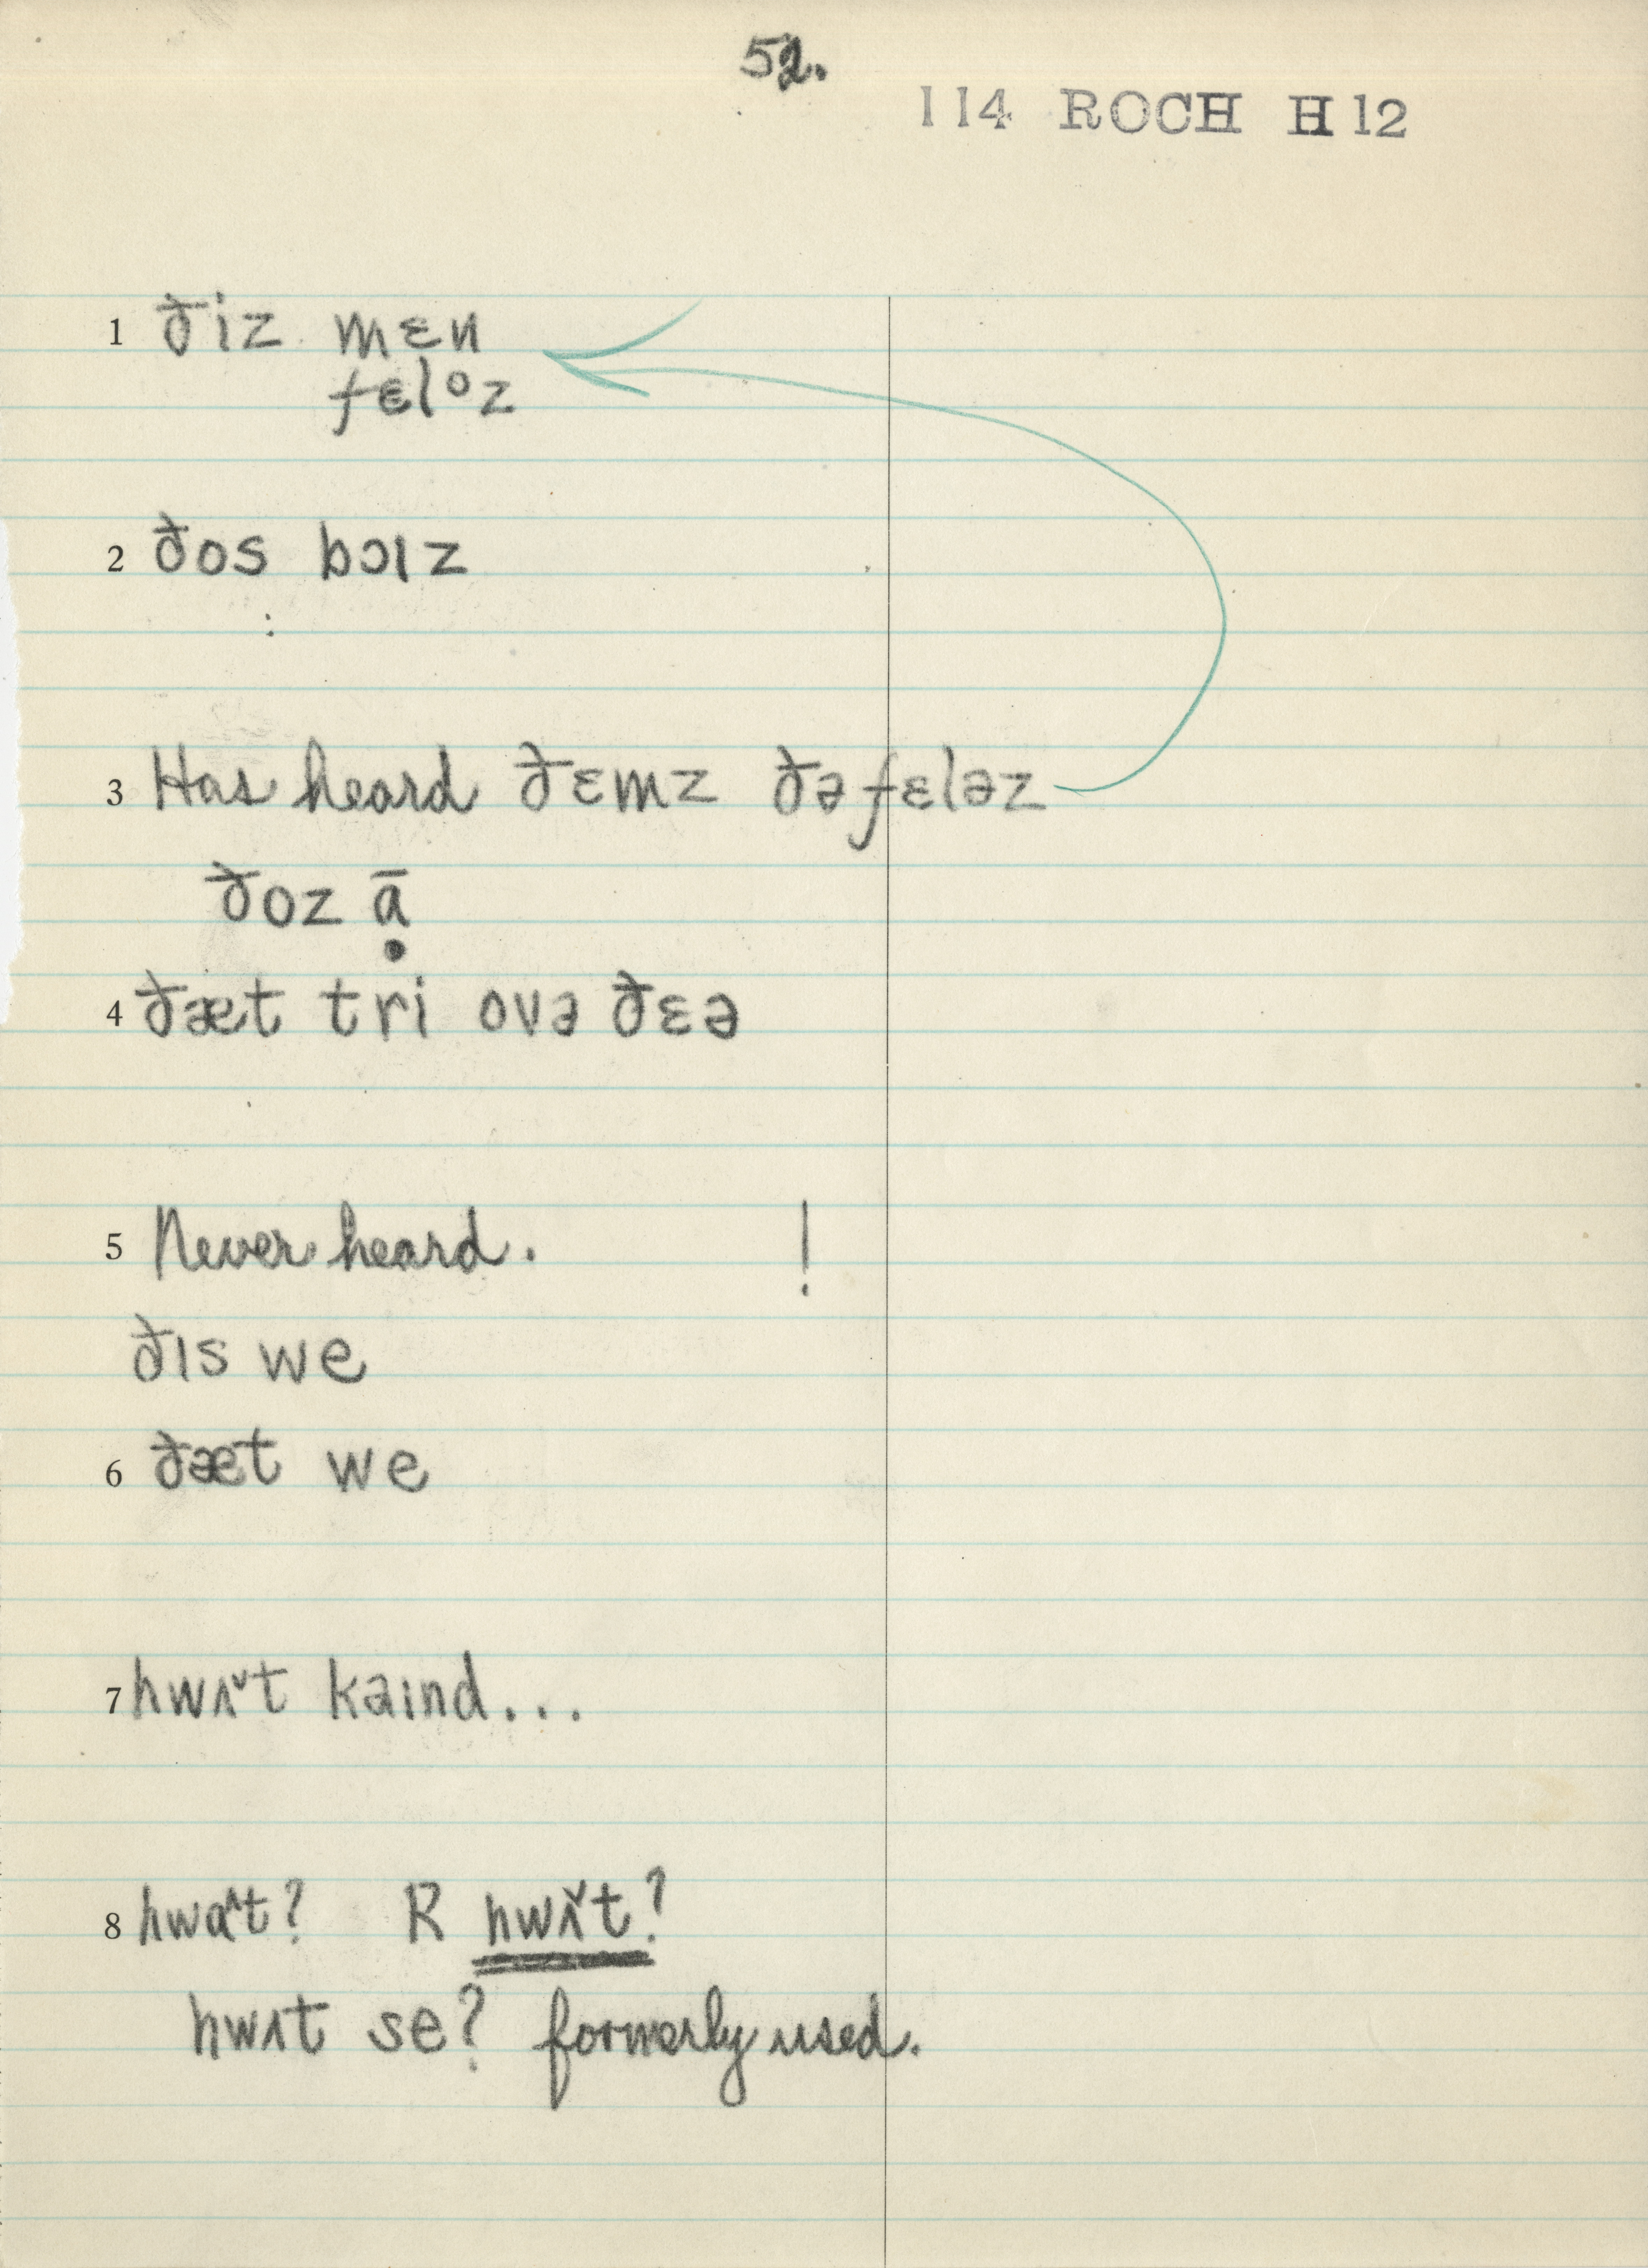 52.
114 ROCH H12
1 ðiz mɛn
fɛlᵒz
2 ðos bɔɪz
3 Has heard ðɛmz ðə fɛləz
ðoz ạ̄
4 ðæt tri ovə ðɛə
5 Never heard. !
ðɪs we
6 ðæt we
7 hwʌ˅t kaɪnd...
8 hwɑ^t? R hwʌ˅t?
hwʌt se? formerly used.